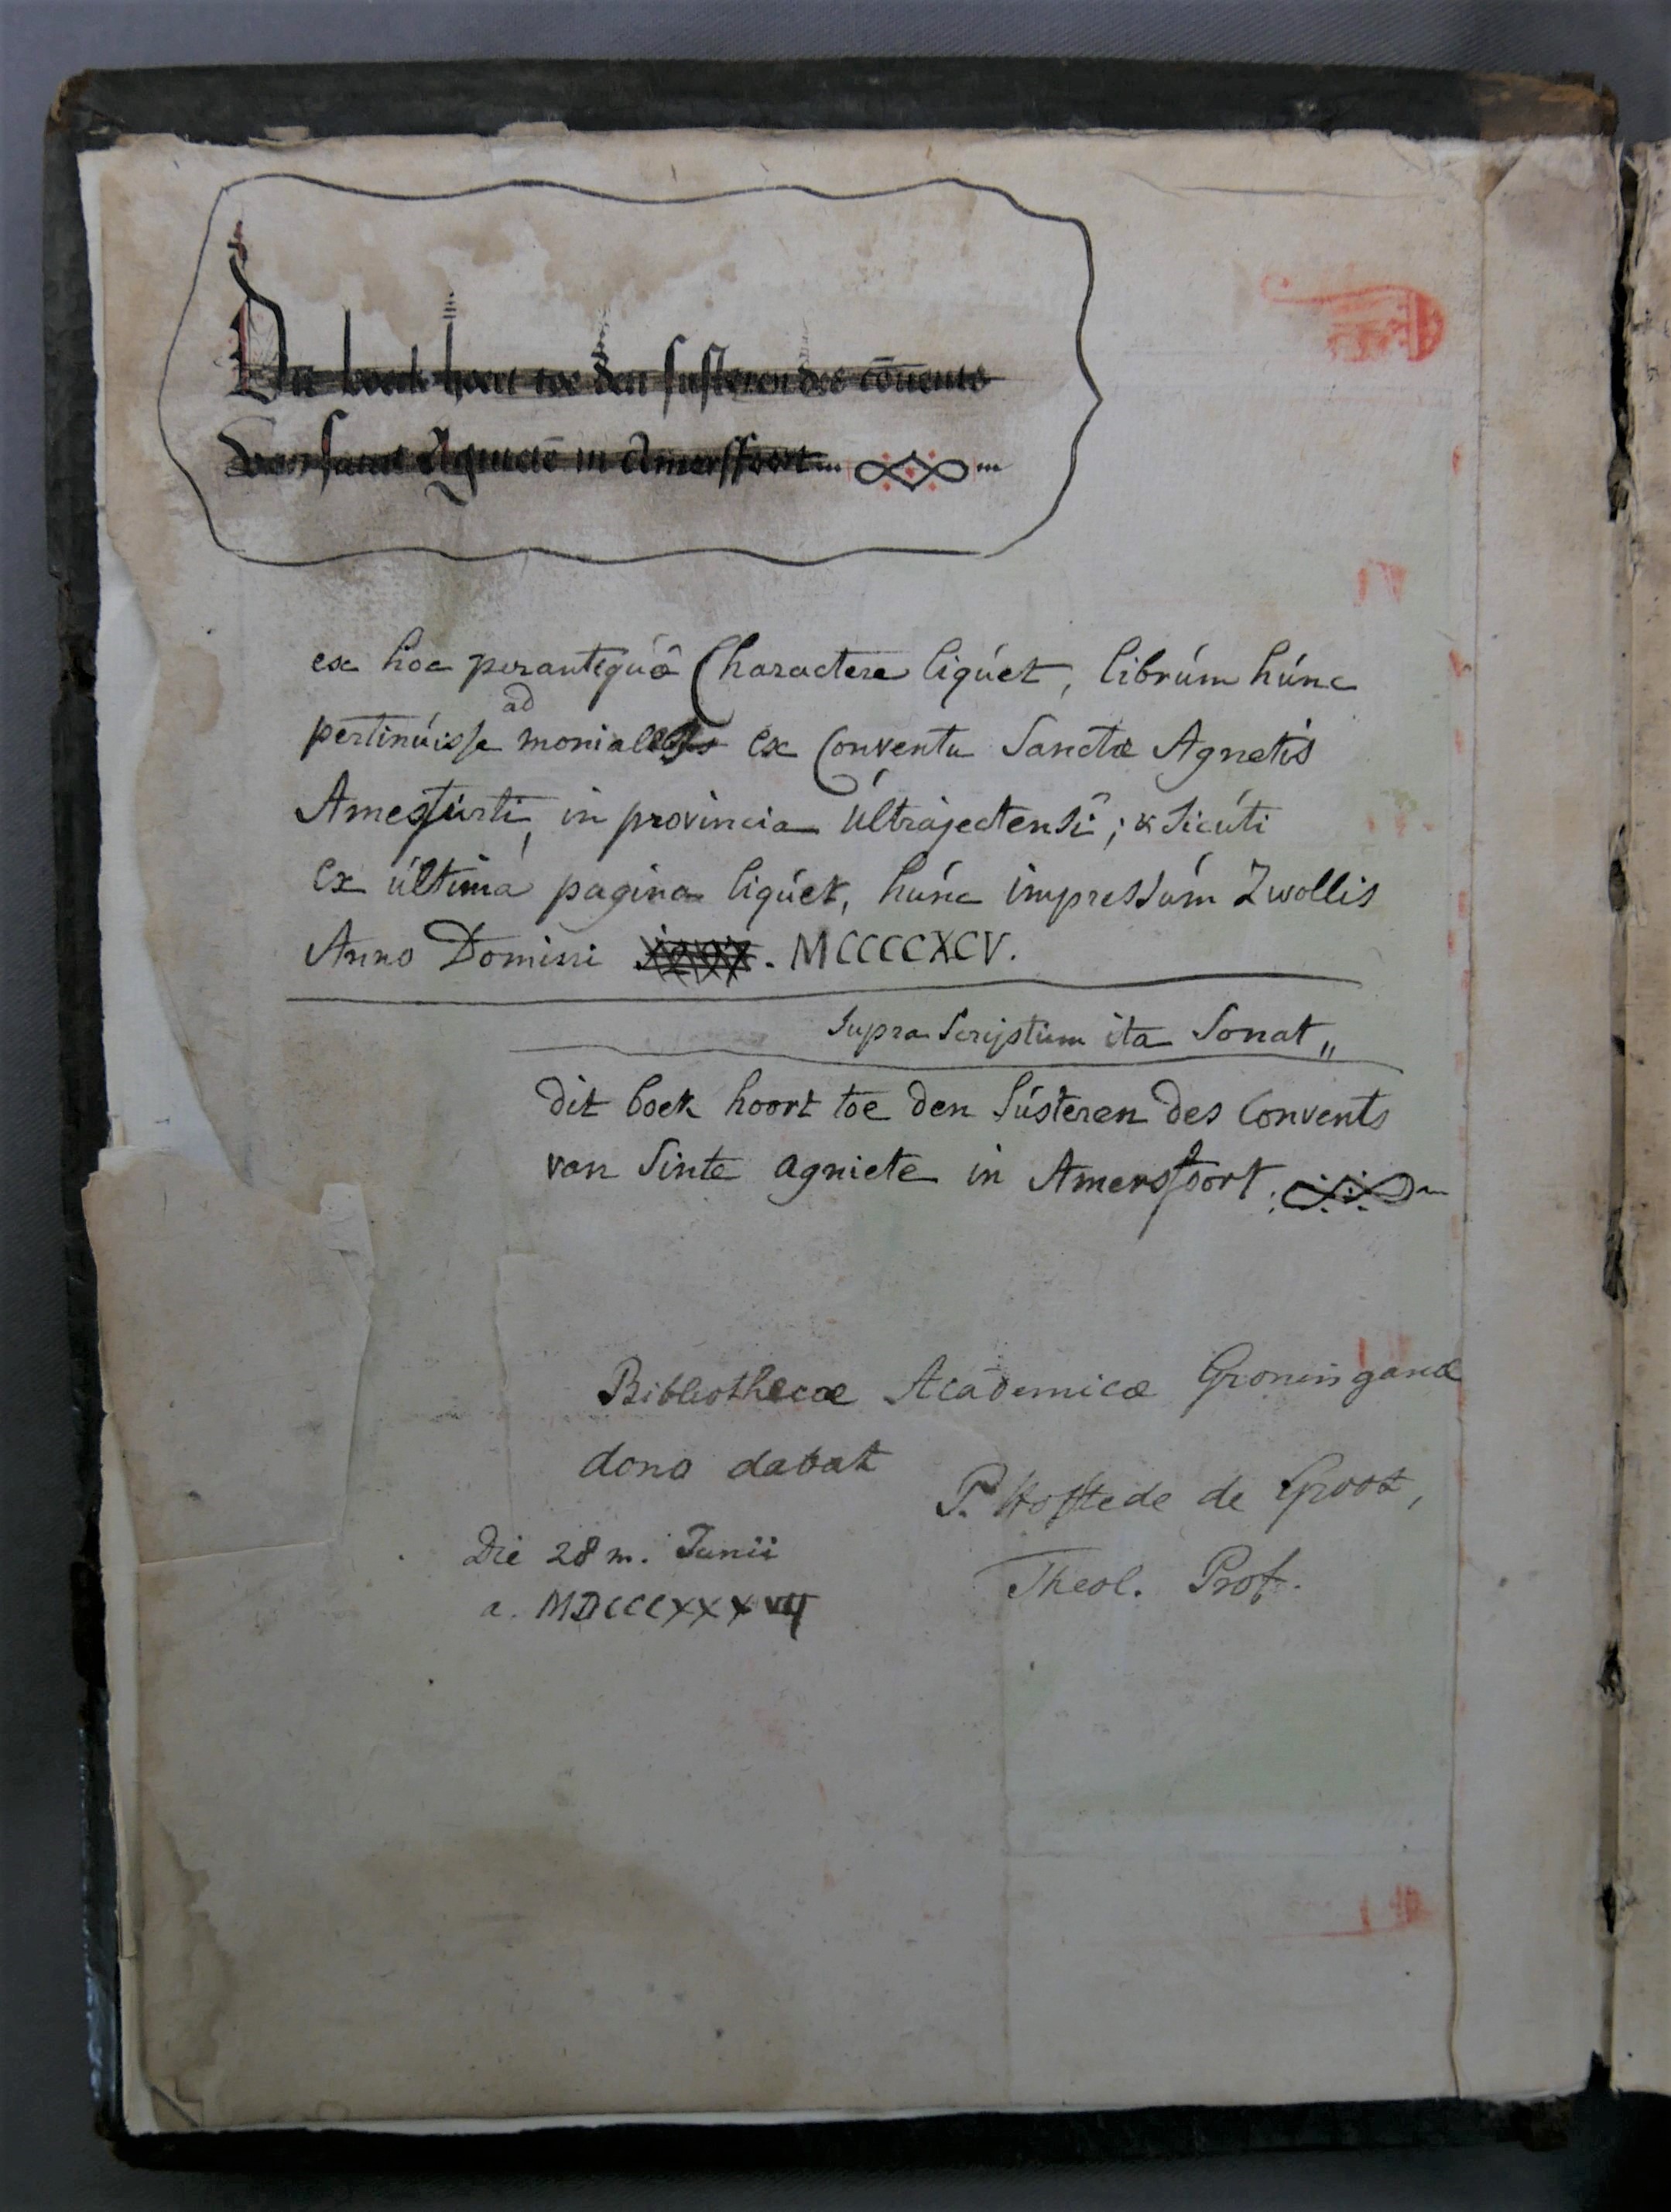 Dit boek hoert toe den susteren des cōuents
van sanct Agnietē in Amersfoort
ex hoc perantiquô Charactere liqúet, librúm húnc
ad
pertinúisse moniales ex Conventu Sanctæ Agnetis
Amesfúrti, in provincia Últrajectensi; & sicúti
ex última pagina liqúet, húnc impressúm Zwollis
Anno Domini MCCCCXCV.
Supra Scriptum ita Sonat „
dit boek hoort toe den Sústeren des Convents
van Sinte agniete in Amersfoort.
Bibliothecæ Academicæ Groninganæ
dono dabat
P. Hofstede de Groot,
Die 28 m. Junii
Theol. Prof.
a. MDCCCXXX